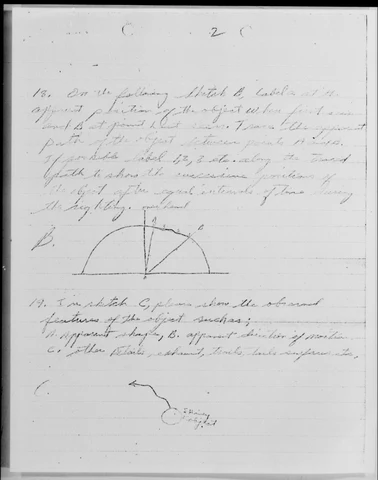 2
18. On the following sketch B, label A at the
apparent position of the object when first seen
and B at point last seen. Trace the apparent
path of the object between points A and B.
If possible label 1, 2, etc. along the traced
path to show the successive positions of
the object after equal intervals of time during
the sighting. overhead
B.
19. In sketch C, please show the observed
features of the object such as;
A. Apparent shape, B. apparent direction of motion
C. other details, exhaust, trails,
C.